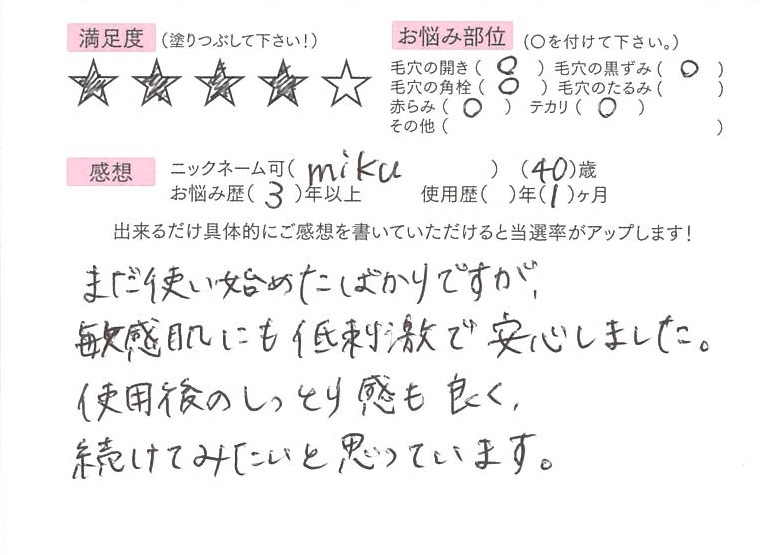 満足度 (塗りつぶして下さい!)
★★★★☆
お悩み部位 (○を付けて下さい。)
毛穴の開き( ○ ) 毛穴の黒ずみ( ○ )
毛穴の角栓( ○ ) 毛穴のたるみ( )
赤らみ( ○ ) テカリ( ○ )
その他( )
感想 ニックネーム可( miku ) (40)歳
お悩み歴( 3 )年以上 使用歴( )年( 1 )ヶ月
出来るだけ具体的にご感想を書いていただけると当選率がアップします!
まだ使い始めたばかりですが、
敏感肌にも低刺激で安心しました。
使用後のしっとり感も良く、
続けてみたいと思っています。